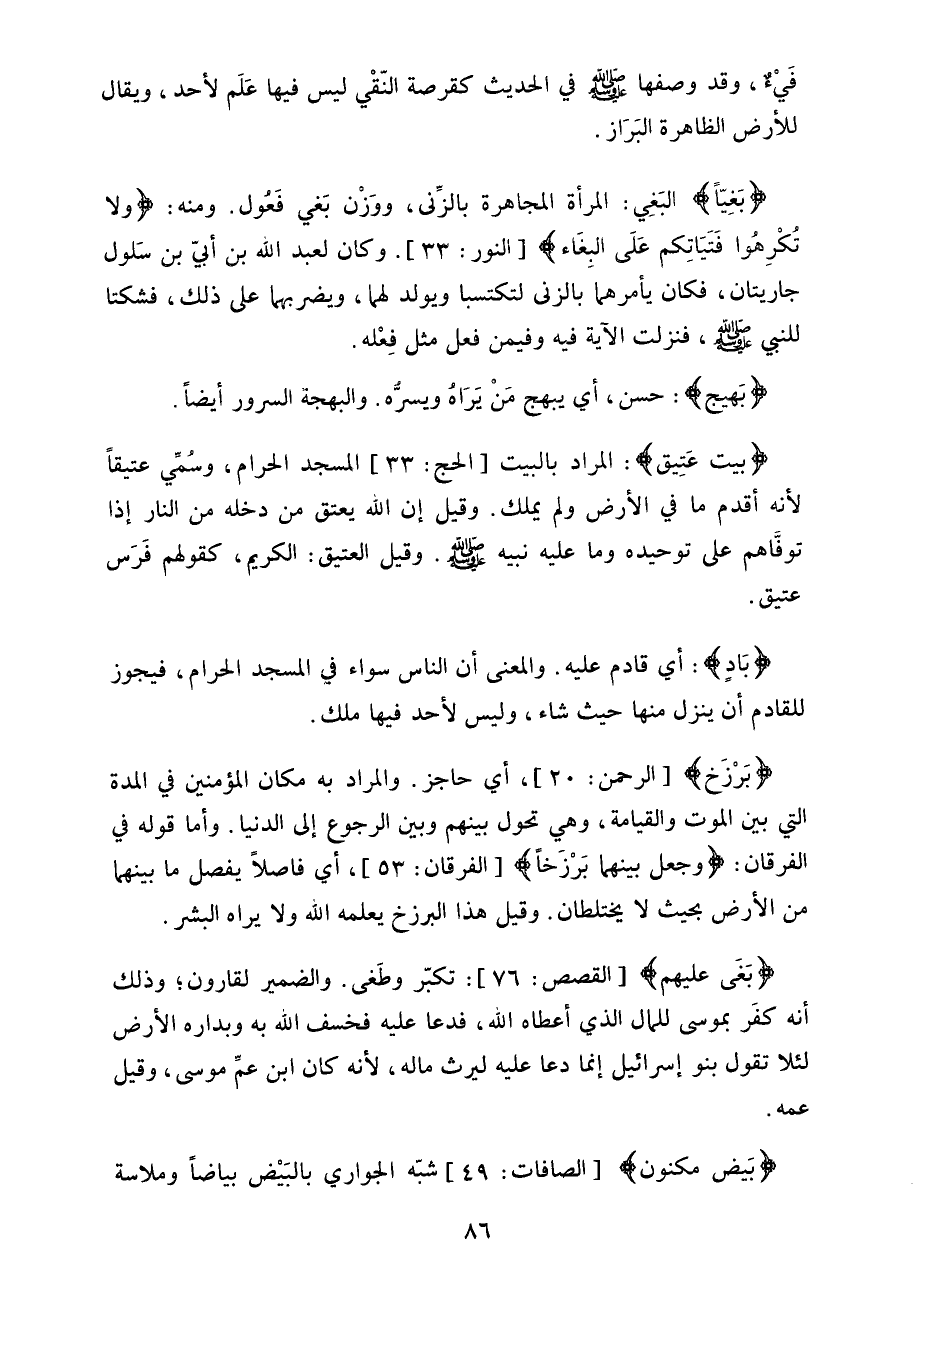 فَيْءٌ ، وقد وصفها ﷺ في الحديث كقرصة النّقْي ليس فيها عَلَم لأحد ، ويقال
للأرض الظاهرة البَرَاز .
﴿بَغِيّاً﴾ البَغِي : المرأة المجاهرة بالزِّنى ، ووَزْن بَغي فَعُول . ومنه : ﴿ولا
تُكْرِهُوا فَتَيَاتِكم عَلَى البِغَاء﴾ [ النور : ٣٣ ] . وكان لعبد الله بن أبيّ بن سَلول
جاريتان ، فكان يأمرهما بالزنى لتكتسبا ويولد لهما ، ويضربهما على ذلك ، فشكتا
للنبي ﷺ ، فنزلت الآية فيه وفيمن فعل مثل فِعْله .
﴿بَهيج﴾ : حسن ، أي يبهج مَنْ يَرَاهُ ويسرُّه . والبهجة السرور أيضاً .
﴿بيت عَتِيق﴾ : المراد بالبيت [ الحج : ٣٣ ] المسجد الحرام ، وسُمِّي عتيقاً
لأنه أقدم ما في الأرض ولم يملك . وقيل إن الله يعتق من دخله من النار إذا
توفَّاهم على توحيده وما عليه نبيه ﷺ . وقيل العتيق : الكريم ، كقولهم فَرَس
عتيق .
﴿بَادٍ﴾ : أي قادم عليه . والمعنى أن الناس سواء في المسجد الحرام ، فيجوز
للقادم أن ينزل منها حيث شاء ، وليس لأحد فيها ملك .
﴿بَرْزَخ﴾ [ الرحمن : ٢٠ ] ، أي حاجز . والمراد به مكان المؤمنين في المدة
التي بين الموت والقيامة ، وهي تحول بينهم وبين الرجوع إلى الدنيا . وأما قوله في
الفرقان : ﴿وجعل بينهما بَرْزَخاً﴾ [ الفرقان : ٥٣ ] ، أي فاصلاً يفصل ما بينهما
من الأرض بحيث لا يختلطان . وقيل هذا البرزخ يعلمه الله ولا يراه البشر .
﴿بَغَى عليهم﴾ [ القصص : ٧٦ ] : تكبّر وطَغى . والضمير لقارون ؛ وذلك
أنه كفَر بموسى للمال الذي أعطاه الله ، فدعا عليه فخسف الله به وبداره الأرض
لئلا تقول بنو إسرائيل إنما دعا عليه ليرث ماله ، لأنه كان ابن عمِّ موسى ، وقيل
عمه .
﴿بَيض مكنون﴾ [ الصافات : ٤٩ ] شبّه الجواري بالبَيْض بياضاً وملاسة
٨٦